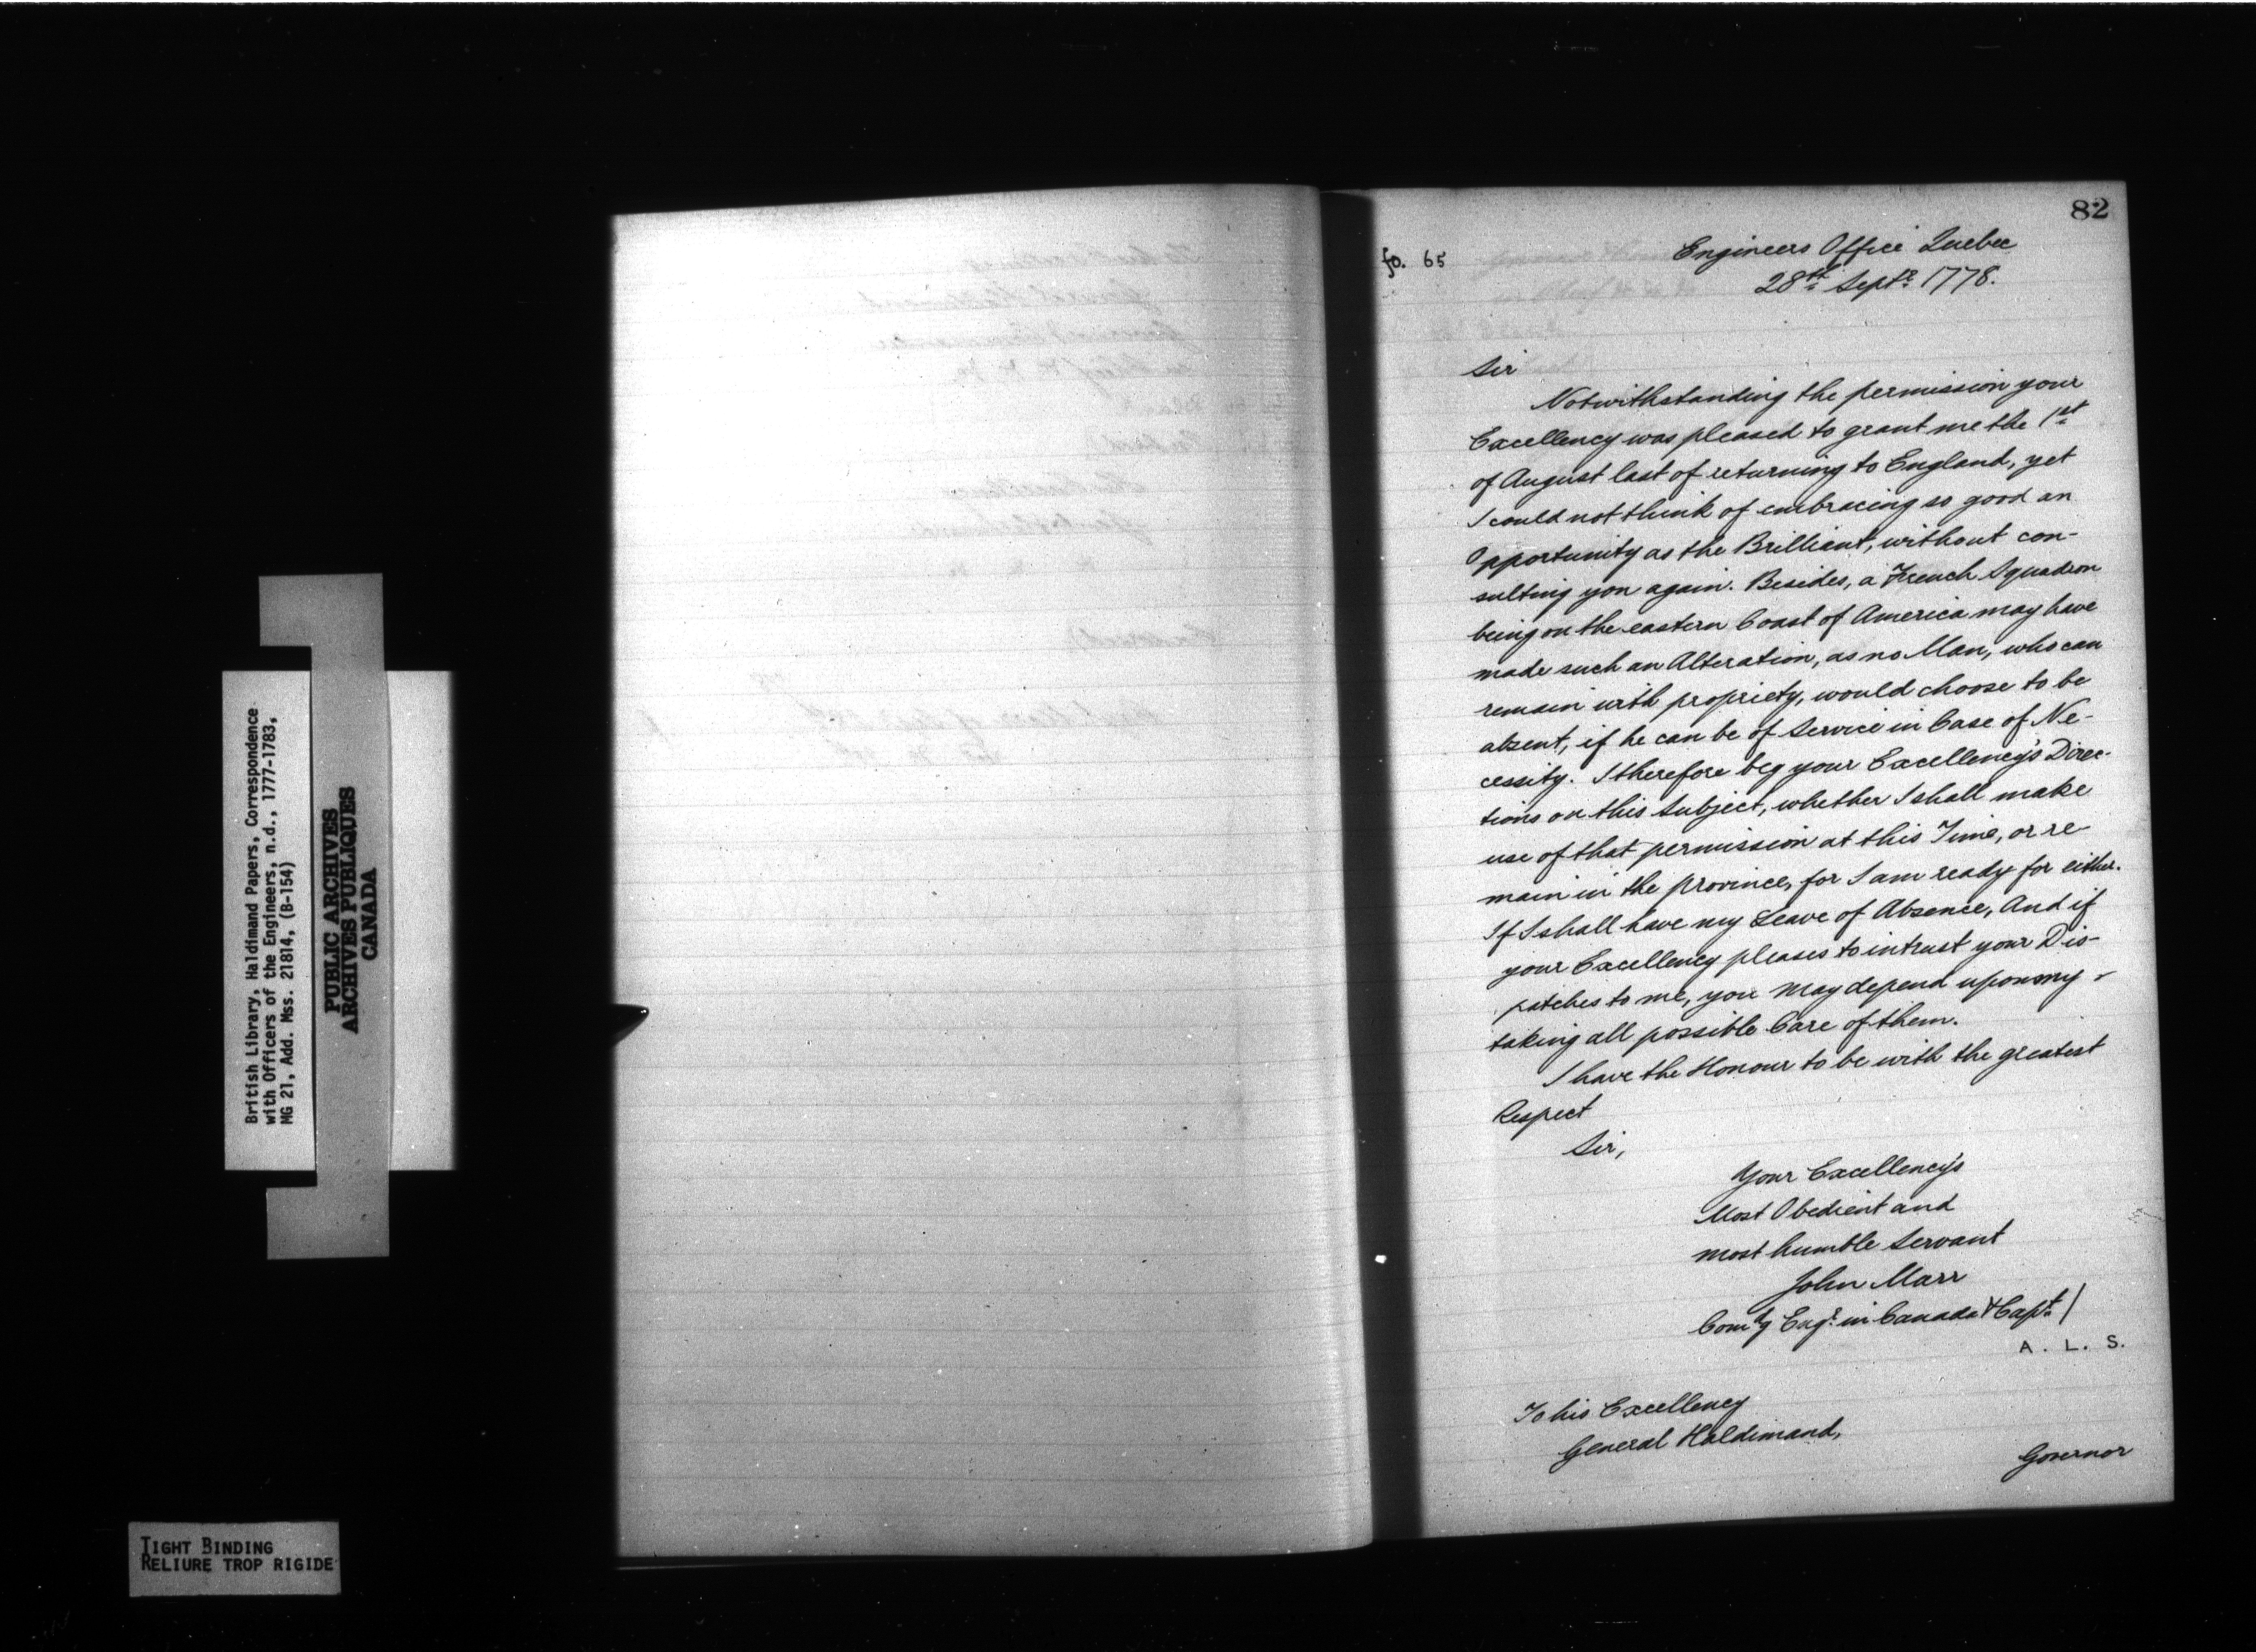 British Library, Haldimand Papers, Correspondence
with Officers of the Engineers, n.d., 1777-1783,
MG 21, Add. Mss. 21814, (B-154)
PUBLIC ARCHIVES
ARCHIVES PUBLIQUES
CANADA
TIGHT BINDING
RELIURE TROP RIGIDE
82
fo. 65
Engineers Office Quebec
28th Septr 1778.
Sir
Notwithstanding the permission your
Excellency was pleased to grant me the 1st
of August last of returning to England, yet
I could not think of embracing so good an
Opportunity as the Brilliant, without con-
sulting you again. Besides, a French Squadron
being on the eastern Coast of America may have
made such an Alteration, as no Man, who can
remain with propriety, would choose to be
absent, if he can be of Service in Case of Ne-
cessity. I therefore beg your Excellency's Direc-
tions on this Subject, whether I shall make
use of that permission at this Time, or re-
main in the province, for I am ready for either.
If I shall have my Leave of Absence, And if
your Excellency pleases to intrust your Dis-
patches to me, you may depend upon my
taking all possible Care of them.
I have the Honour to be with the greatest
Respect
Sir,
Your Excellency's
Most Obedient and
most humble Servant
John Marr
Comg Engr in Canada & Capt /
A. L. S.
To his Excellency
General Haldimand,
Governor